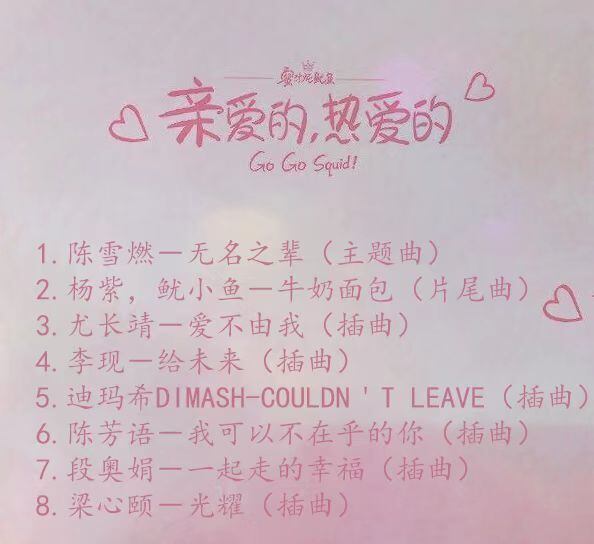 蜜汁炖鱿鱼
亲爱的,热爱的
Go Go Squid!
1.陈雪燃－无名之辈（主题曲）
2.杨紫，鱿小鱼－牛奶面包（片尾曲）
3.尤长靖－爱不由我（插曲）
4.李现－给未来（插曲）
5.迪玛希DIMASH-COULDN'T LEAVE（插曲）
6.陈芳语－我可以不在乎的你（插曲）
7.段奥娟－一起走的幸福（插曲）
8.梁心颐－光耀（插曲）